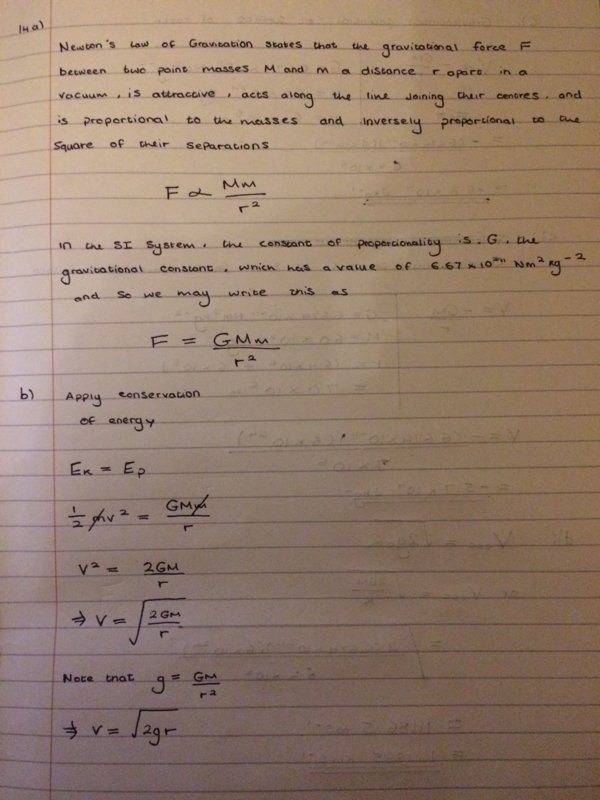 14 a)
Newton's Law of Gravitation states that the gravitational force F
between two point masses M and m a distance r apart in a
vacuum, is attractive, acts along the line joining their centres, and
is proportional to the masses and inversely proportional to the
square of their separations
F ∝ Mm / r²
In the SI System, the constant of proportionality is G, the
gravitational constant, which has a value of 6.67 × 10⁻¹¹ Nm² kg⁻²
and so we may write this as
F = GMm / r²
b) Apply conservation
of energy
Eₖ = Eₚ
½ mv² = GMm / r
v² = 2GM / r
⇒ v = √(2GM / r)
Note that g = GM / r²
⇒ v = √2gr